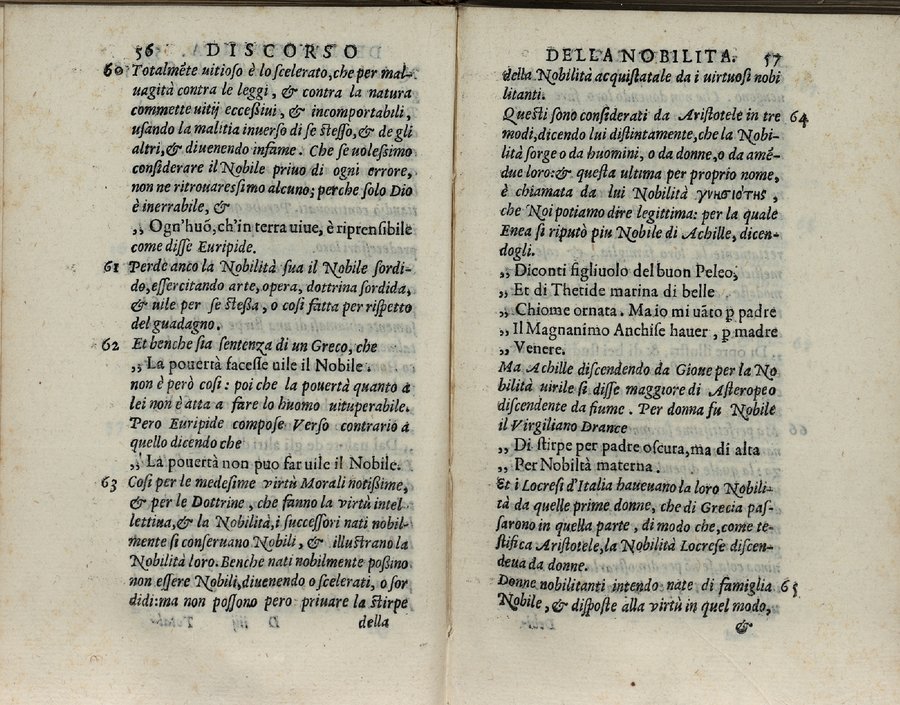 56 DISCORSO
60 Totalmēte uitioso è lo scelerato, che per mal-
uagità contra le leggi, & contra la natura
commette uitij eccessiui, & incomportabili,
usando la malitia inuerso di se stesso, & de gli
altri, & diuenendo infame. Che se uolessimo
considerare il Nobile priuo di ogni errore,
non ne ritrouaressimo alcuno; perche solo Dio
è inerrabile, &
„ Ogn'huō, ch'in terra uiue, è riprensibile
come disse Euripide.
61 Perde anco la Nobilità sua il Nobile sordi-
do, essercitando arte, opera, dottrina sordida,
& uile per se stessa, o cosi fatta per rispetto
del guadagno.
62 Et benche sia sentenza di un Greco, che
„ La pouertà facesse uile il Nobile.
non è però cosi: poi che la pouertà quanto à
lei non è atta a fare lo huomo uituperabile.
Pero Euripide compose Verso contrario à
quello dicendo che
„ La pouertà non puo far uile il Nobile.
63 Cosi per le medesime virtù Morali notissime,
& per le Dottrine, che fanno la virtù intel
lettiua, & la Nobilità, i successori nati nobil-
mente si conseruano Nobili, & illustrano la
Nobilità loro. Benche nati nobilmente possino
non essere Nobili, diuenendo o scelerati, o sor
didi: ma non possono pero priuare la stirpe
D iiij della
DELLA NOBILITA. 57
della Nobilità acquistatale da i uirtuosi nobi
litanti.
Questi sono considerati da Aristotele in tre 64
modi, dicendo lui distintamente, che la Nobi-
lità sorge o da huomini, o da donne, o da amē-
due loro: & questa ultima per proprio nome,
è chiamata da lui Nobilità γνησιότης,
che Noi potiamo dire legittima: per la quale
Enea si riputò piu Nobile di Achille, dicen-
dogli.
„ Diconti figliuolo del buon Peleo,
„ Et di Thetide marina di belle
„ Chiome ornata. Ma io mi uāto p padre
„ Il Magnanimo Anchise hauer, p madre
„ Venere.
Ma Achille discendendo da Gioue per la No
bilità uirile si disse maggiore di Asteropeo
discendente da fiume. Per donna fu Nobile
il Virgiliano Drance
„ Di stirpe per padre oscura, ma di alta
„ Per Nobiltà materna.
Et i Locresi d'Italia haueuano la loro Nobili-
tà da quelle prime donne, che di Grecia pas-
sarono in quella parte, di modo che, come te-
stifica Aristotele, la Nobilità Locrese discen-
deua da donne.
Donne nobilitanti intendo nate di famiglia 65
Nobile, & disposte alla virtù in quel modo,
&